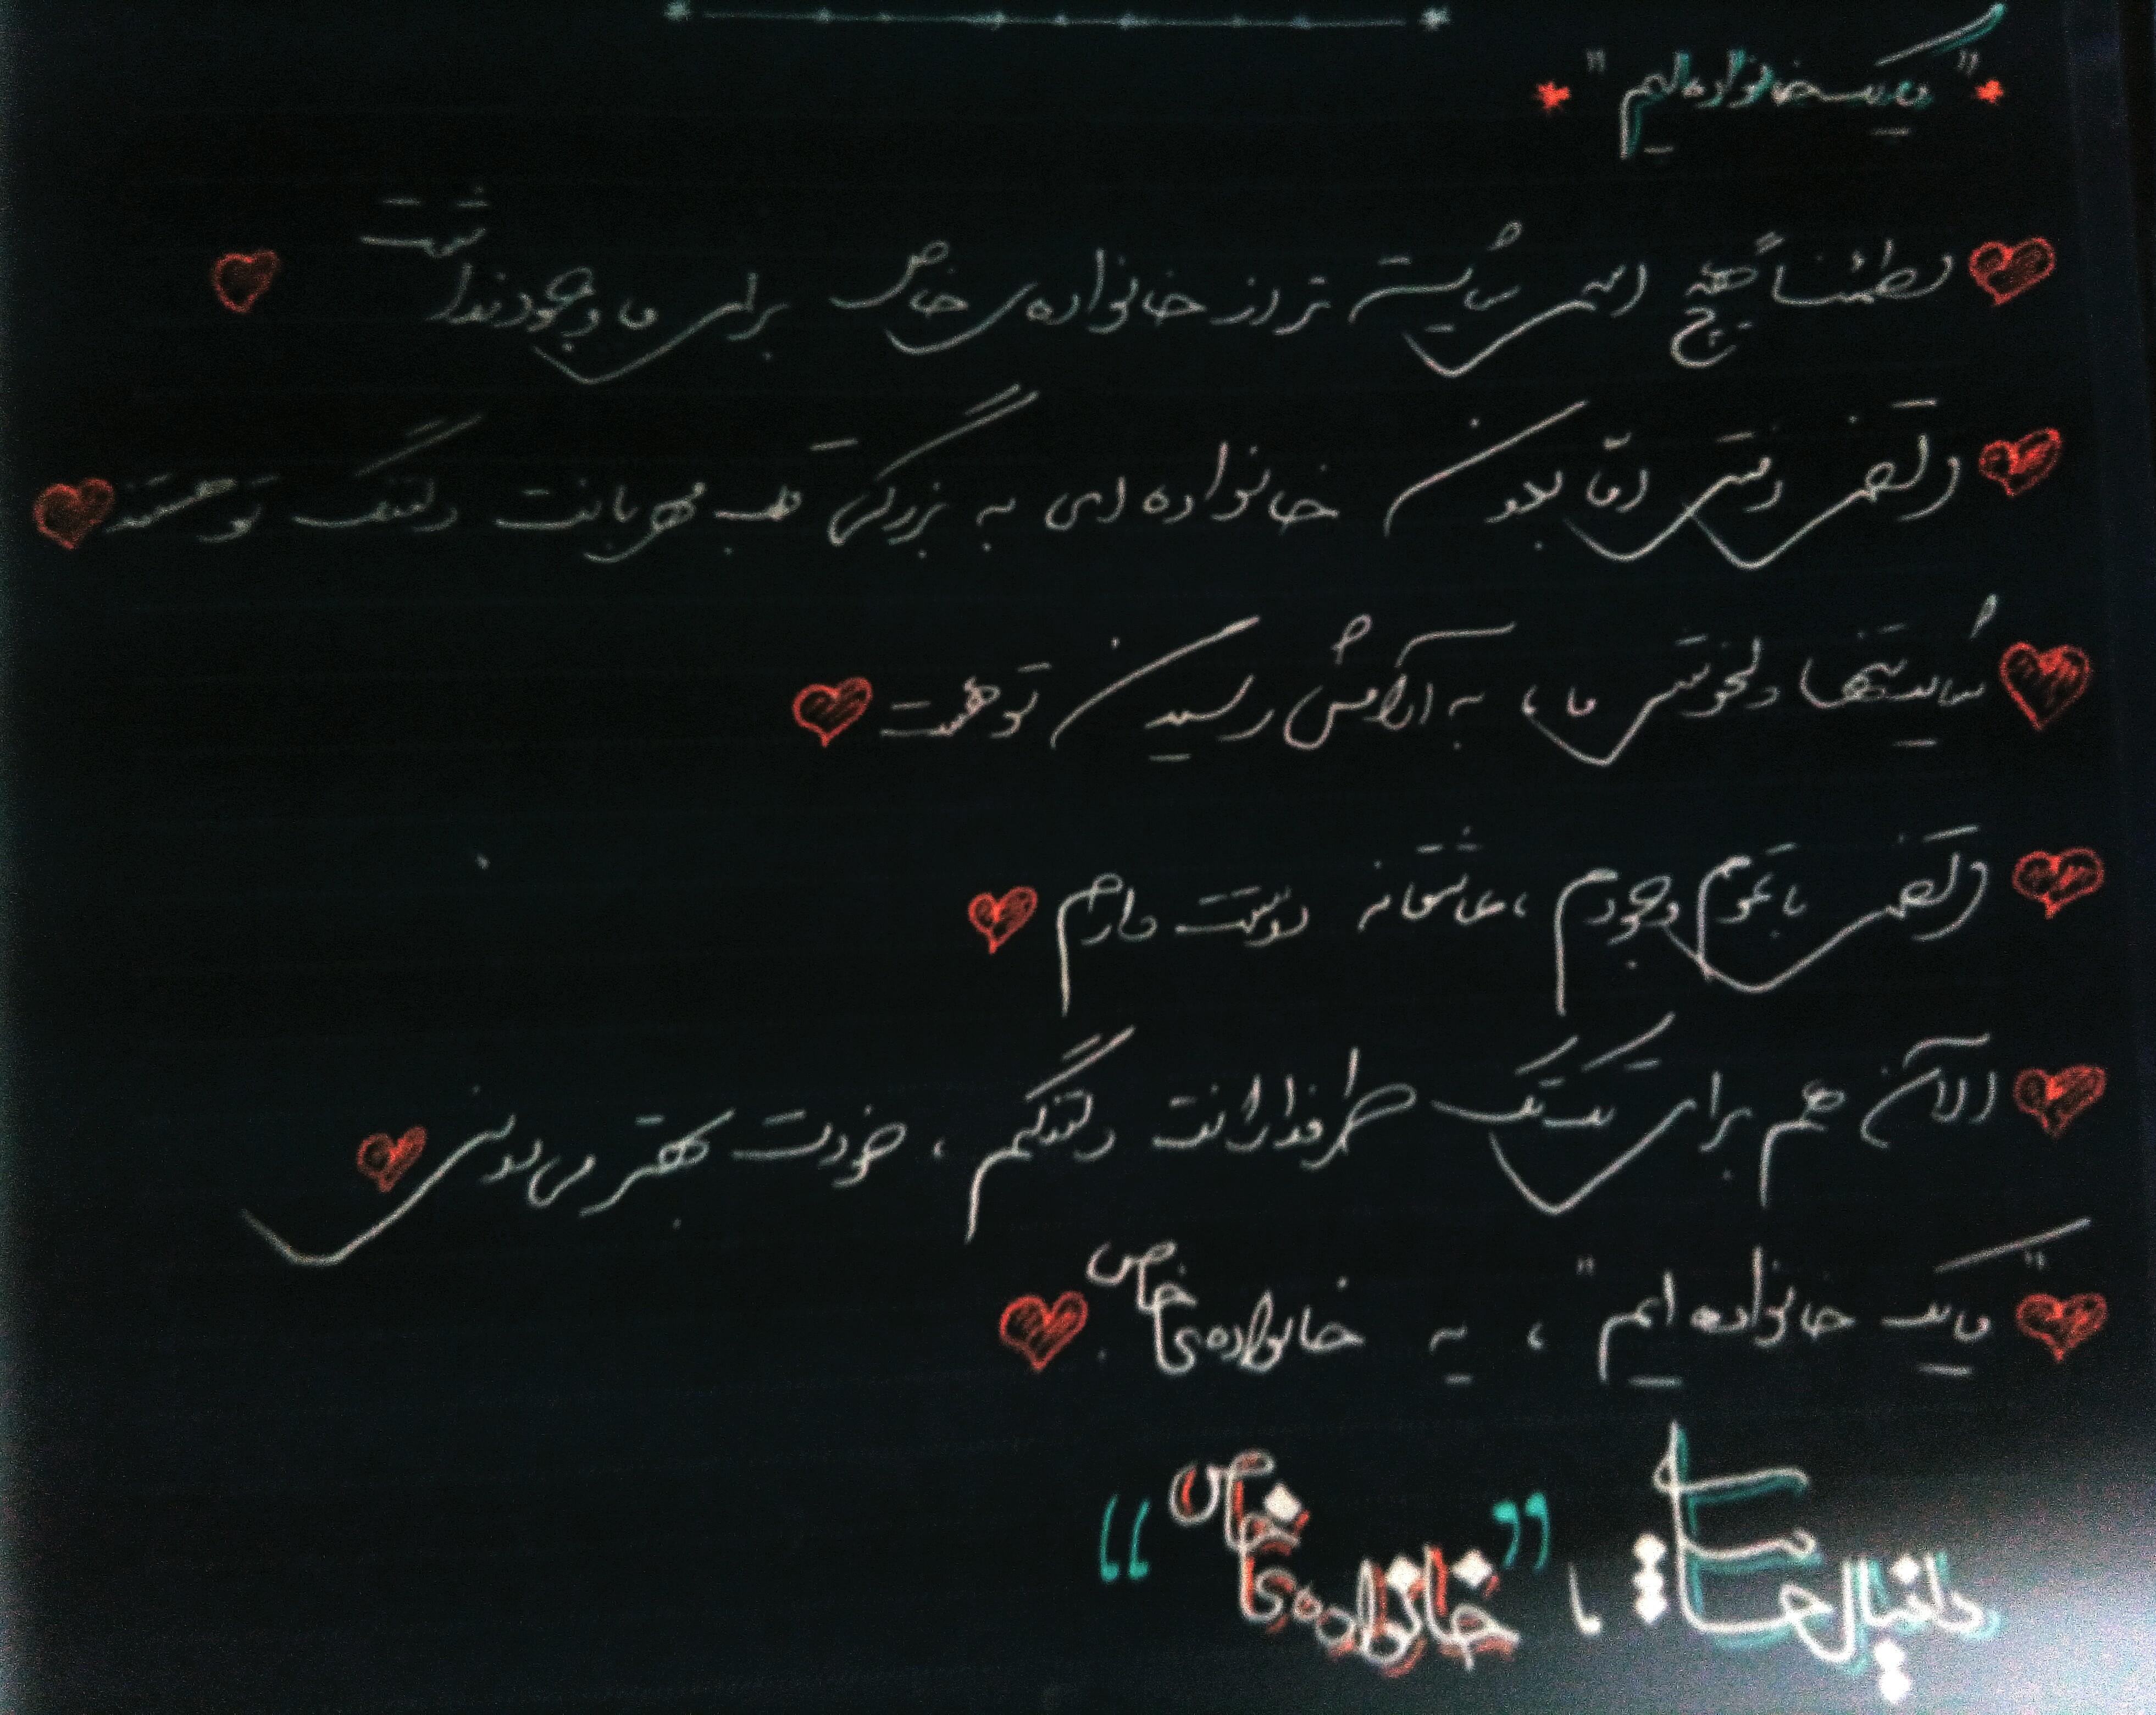 "ما یک خانواده ایم"
مطمئناً هیچ اسمی شایسته تر از خانواده ی خاص برای ما وجود نداشت
مرتضی رفتی امّا بدون خانواده ای به بزرگی قلب مهربانت دلتنگ تو هستند
شاید تنها دلخوشی ما، به آرامش رسیدن تو هست
مرتضی با تموم وجودم، عاشقانه دوست دارم
الآن هم برای تک تک طرفدارانت دلتنگم، خودت بهتر می دونی
"ما یک خانواده ایم"، یه خانواده ی خاص.
دانیال ، "خانواده ی خاص"